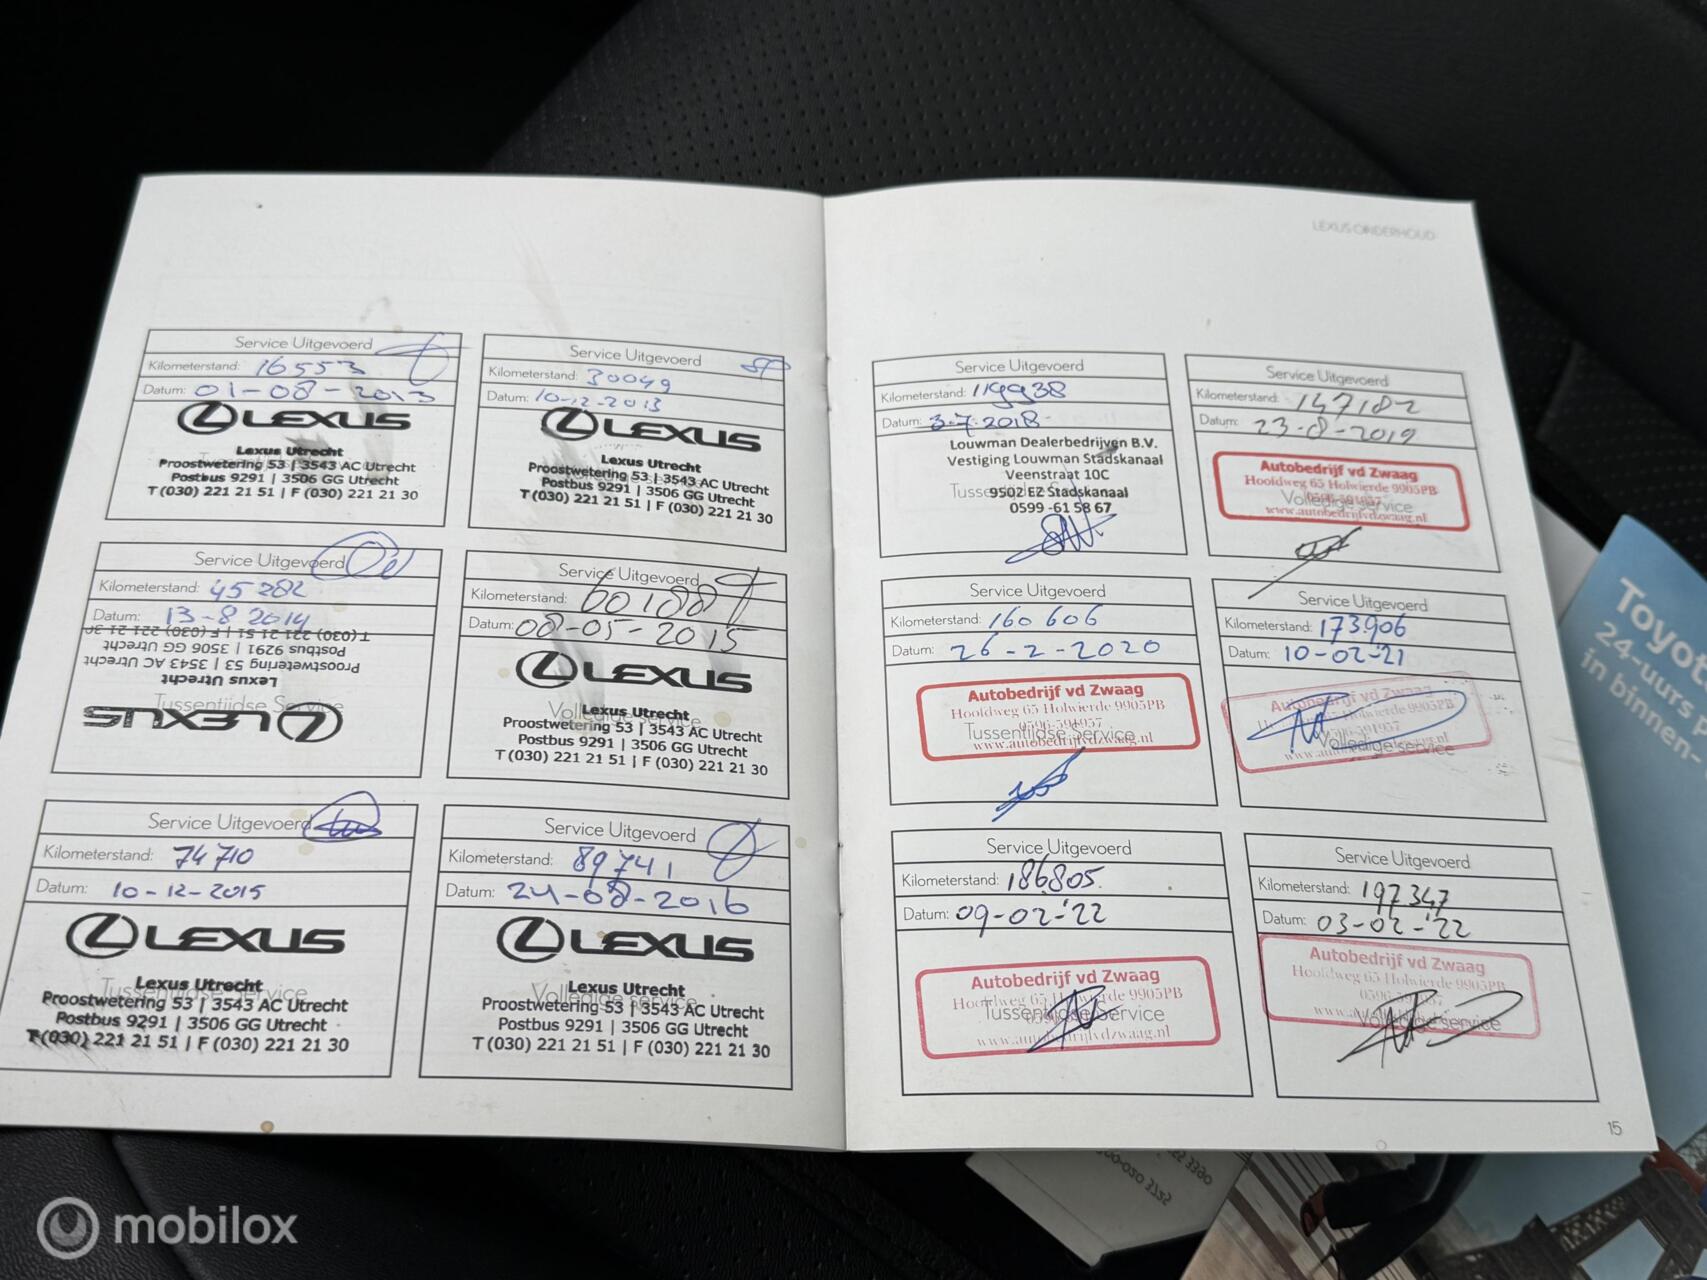 LEXUS ONDERHOUD
Service Uitgevoerd
Kilometerstand: 16553
Datum: 01-08-2013
LEXUS
Lexus Utrecht
Proostwetering 53 | 3543 AC Utrecht
Postbus 9291 | 3506 GG Utrecht
T (030) 221 21 51 | F (030) 221 21 30
Service Uitgevoerd
Kilometerstand: 30049
Datum: 10-12-2013
LEXUS
Lexus Utrecht
Proostwetering 53 | 3543 AC Utrecht
Postbus 9291 | 3506 GG Utrecht
T (030) 221 21 51 | F (030) 221 21 30
Service Uitgevoerd
Kilometerstand: 45282
Datum: 13-8 2014
T (030) 221 21 51 | F (030) 221 21 30
Postbus 9291 | 3506 GG Utrecht
Proostwetering 53 | 3543 AC Utrecht
Lexus Utrecht
Tussentijdse Service
LEXUS
Service Uitgevoerd
Kilometerstand: 60188
Datum: 08-05-2015
LEXUS
Lexus Utrecht
Volledige service
Proostwetering 53 | 3543 AC Utrecht
Postbus 9291 | 3506 GG Utrecht
T (030) 221 21 51 | F (030) 221 21 30
Service Uitgevoerd
Kilometerstand: 74710
Datum: 10-12-2015
LEXUS
Lexus Utrecht
Tussentijdse Service
Proostwetering 53 | 3543 AC Utrecht
Postbus 9291 | 3506 GG Utrecht
T (030) 221 21 51 | F (030) 221 21 30
Service Uitgevoerd
Kilometerstand: 89741
Datum: 24-08-2016
LEXUS
Lexus Utrecht
Volledige service
Proostwetering 53 | 3543 AC Utrecht
Postbus 9291 | 3506 GG Utrecht
T (030) 221 21 51 | F (030) 221 21 30
Service Uitgevoerd
Kilometerstand: 119938
Datum: 3-7-2018
Louwman Dealerbedrijven B.V.
Vestiging Louwman Stadskanaal
Veenstraat 10C
9502 EZ Stadskanaal
0599 -61 58 67
Service Uitgevoerd
Kilometerstand: 147182
Datum: 23-8-2019
Autobedrijf vd Zwaag
Hooldweg 65 Holwierde 9905PB
0596-591957
Volledige service
www.autobedrijfvdzwaag.nl
Service Uitgevoerd
Kilometerstand: 160606
Datum: 26-2-2020
Autobedrijf vd Zwaag
Hooldweg 65 Holwierde 9905PB
0596-591957
Tussentijdse Service
www.autobedrijfvdzwaag.nl
Service Uitgevoerd
Kilometerstand: 173.906
Datum: 10-02-'21
Autobedrijf vd Zwaag
Holwierde 9905PB
Volledige service
Service Uitgevoerd
Kilometerstand: 186.805.
Datum: 09-02-'22
Autobedrijf vd Zwaag
Hooldweg 65 Holwierde 9905PB
Tussentijdse Service
www.autobedrijfvdzwaag.nl
Service Uitgevoerd
Kilometerstand: 197347
Datum: 03-02-'22
Autobedrijf vd Zwaag
Hooldweg 65 Holwierde 9905PB
Volledige service
15
24-uurs
in binnen-
mobilox